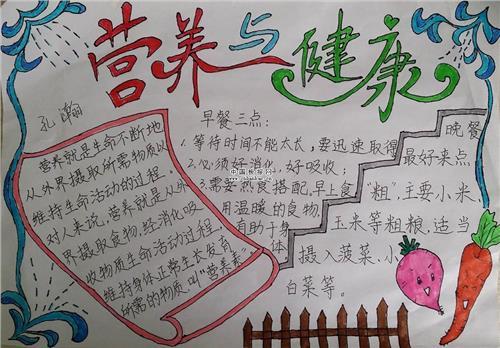 营养与健康
孔瀚
营养就是生命不断地
从外界摄取所需物质以
维持生命活动的过程。
对人来说,营养就是从外
界摄取食物,经消化吸
收物质生命活动过程,
维持身体正常生长发育
所需的物质叫“营养素”
早餐三点:
1.等待时间不能太长,要迅速取得
2.必须好消化,好吸收;
3.需要热食搭配,早上食
用温暖的食物,
有助于身
体
晚餐
最好来点
“粗”,主要小米,
玉米等粗粮,适当
摄入菠菜、小
白菜等。
中国板报网